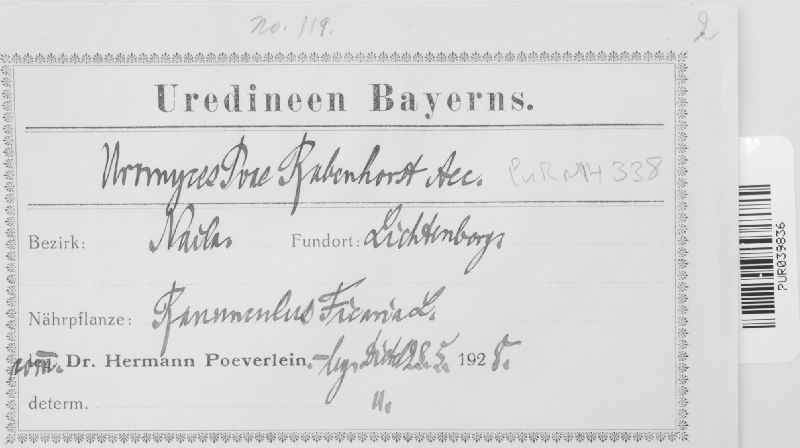 No. 119.
2
Uredineen Bayerns.
Uromyces Poae Rabenhorst Aec. PUR NH 338
Bezirk: Naila. Fundort: Lichtenberg,
Nährpflanze: Ranunculus Ficaria L.
com. Dr. Hermann Poeverlein. – leg. 28. 5. 1928.
determ. "
PUR039836